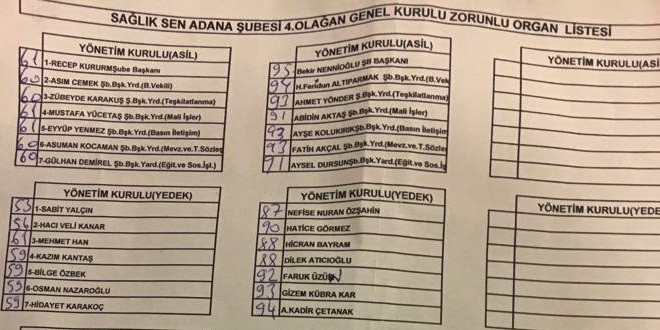 SAĞLIK SEN ADANA ŞUBESİ 4.OLAĞAN GENEL KURULU ZORUNLU ORGAN LİSTESİ
YÖNETİM KURULU(ASİL)
61 1-RECEP KURURMŞube Başkanı
60 2-ASIM CEMEK Şb.Bşk.Yrd.(B.Vekili)
60 3-ZÜBEYDE KARAKUŞ Ş.Bşk.Yrd.(Teşkilatlanma)
61 4-MUSTAFA YÜCETAŞ Şb.Bşk.Yrd.(Mali İşler)
61 5-EYYÜP YENMEZ Şb.Bşk.Yrd.(Basın İletişim)
60 6-ASUMAN KOCAMAN Şb.Bşk.Yrd.(Mevz.ve.T.Sözleş
60 7-GÜLHAN DEMIREL Şb.Bşk.Yard.(Eğit.ve Sos.İşl.)
YÖNETİM KURULU(ASİL)
95 Bekir NENNİOĞLU ŞB BAŞKANI
94 H.Feridun ALTIPARMAK Şb.Bşk.Yrd.(B.Vek
93 AHMET YÖNDER Ş.Bşk.Yrd.(Teşkilatlanma)
91 ABİDİN AKTAŞ Şb.Bşk.Yrd.(Mali İşler)
92 AYŞE KOLUKIRIKŞb.Bşk.Yrd.(Basın İletişim
93 FATİH AKÇAL Şb.Bşk.Yrd.(Mevz.ve.T.Sözleş
91 AYSEL DURSUNŞb.Bşk.Yard.(Eğit.ve Sos.İş
YÖNETİM KURULU(ASİ
YÖNETİM KURULU(YEDEK)
53 1-SABİT YALÇIN
56 2-HACI VELİ KANAR
61 3-MEHMET HAN
59 4-KAZIM KANTAŞ
59 5-BİLGE ÖZBEK
59 6-OSMAN NAZAROĞLU
59 7-HİDAYET KARAKOÇ
YÖNETİM KURULU(YEDEK)
87 NEFİSE NURAN ÖZŞAHİN
90 HATİCE GÖRMEZ
88 HİCRAN BAYRAM
88 DİLEK ATICIOĞLU
92 FARUK ÜZÜN
93 GİZEM KÜBRA KAR
94 A.KADİR ÇETANAK
YÖNETİM KURULU(YEDE